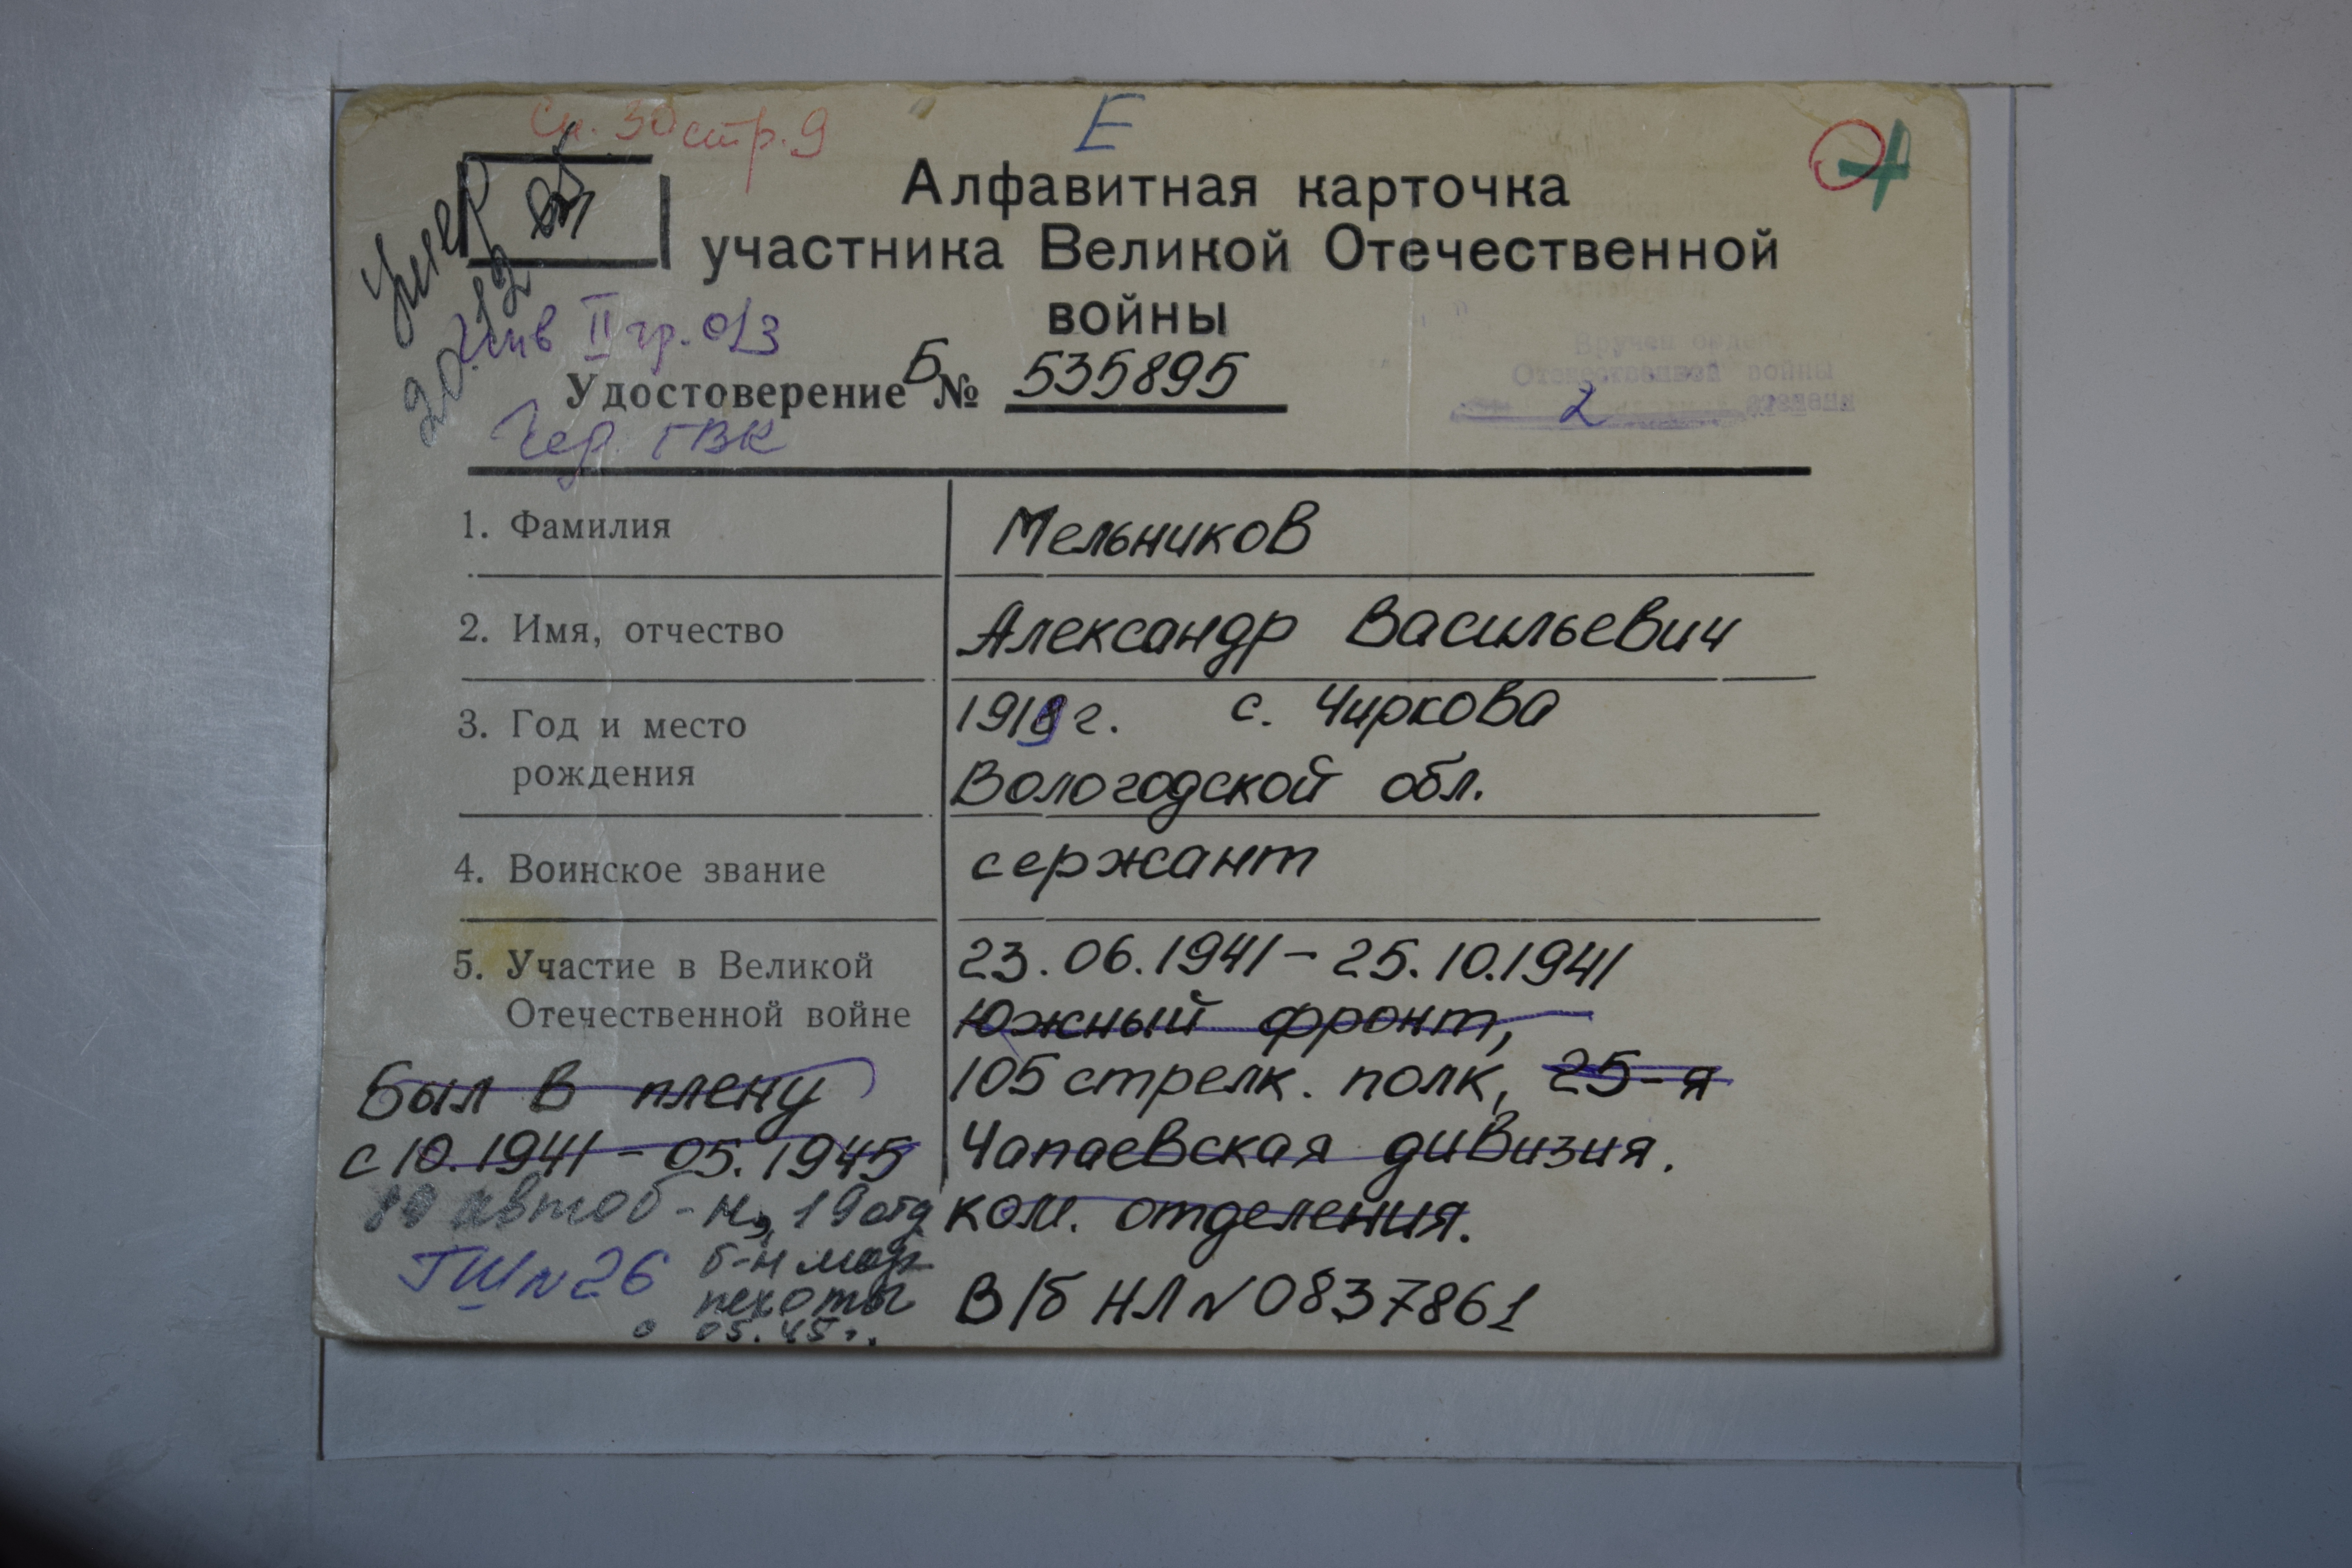 Сп. 30 стр. 9
Е
Алфавитная карточка
участника Великой Отечественной
войны
Умер
20.12
Инв II гр. о/з
Удостоверение Б № 535895
Чер. ГВК
Вручен орден
Отечественной войны
2 степени
1. Фамилия Мельников
2. Имя, отчество Александр Васильевич
3. Год и место 1919 г. с. Чиркова
рождения Вологодской обл.
4. Воинское звание сержант
5. Участие в Великой 23.06.1941 – 25.10.1941
Отечественной войне Южный фронт,
Был в плену 105 стрелк. полк, 25-я
с 10.1941 – 05.1945 Чапаевская дивизия.
89 автоб-н, 19 отд ком. отделения.
б-н мор
пехоты
05.45г.
ГШ № 26
В/б НЛ № 0837861